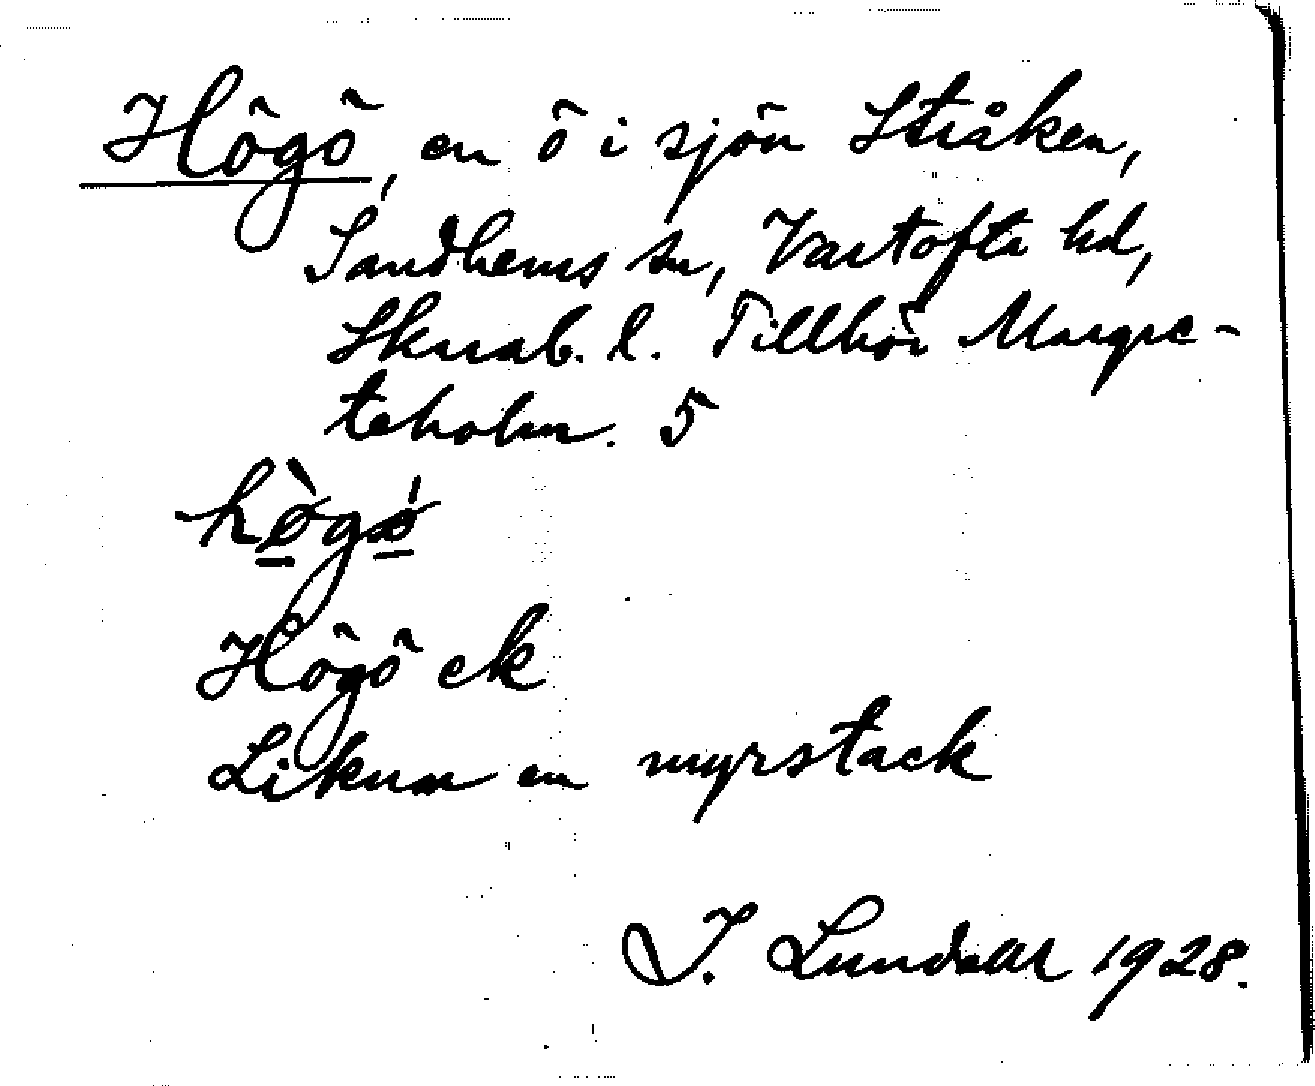 Högö, en ö i sjön Stråken,
Sandhems sn, Vartofta hd,
Skarab. l. Tillhör Margre-
teholm. 5
hø̀gǿ
Högö ek
Liknar en myrstack
I. Lundahl 1928.